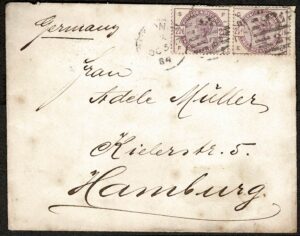 Germany
Frau
Adele Müller
Kielerstr. 5.
Hamburg.